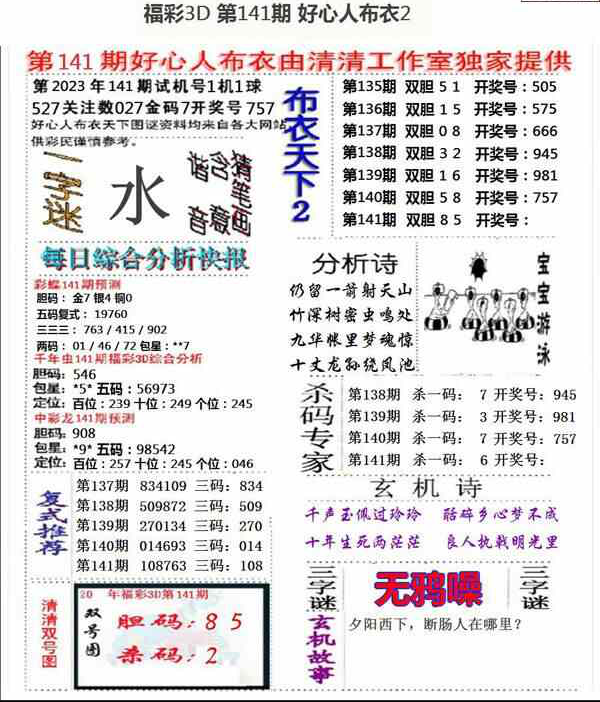 福彩3D 第141期 好心人布衣2
第141期好心人布衣由清清工作室独家提供
第2023年141期试机号1机1球
527关注数027金码7开奖号757
好心人布衣天下图谜资料均来自各大网站
供彩民谨慎参考。
一字谜
水
谐音
含意
猜笔画
布衣天下2
第135期 双胆 5 1 开奖号：505
第136期 双胆 1 5 开奖号：575
第137期 双胆 0 8 开奖号：666
第138期 双胆 3 2 开奖号：945
第139期 双胆 1 6 开奖号：981
第140期 双胆 5 8 开奖号：757
第141期 双胆 8 5 开奖号：
每日綜合分析快报
彩蝶141期预测
胆码： 金7 银4 铜0
五码复式： 19760
三三三： 763 / 415 / 902
两码： 01 / 46 / 72 包星： **7
千年虫141期福彩3D综合分析
胆码：546
包星：*5* 五码：56973
定位：百位：239 十位：249 个位：245
中彩龙141期预测
胆码：908
包星：*9* 五码：98542
定位：百位：257 十位：245 个位：046
分析诗
仍留一箭射天山
竹深树密虫鸣处
九华帐里梦魂惊
十丈龙孙绕凤池
宝宝游泳
杀码专家
第138期 杀一码： 7 开奖号：945
第139期 杀一码： 3 开奖号：981
第140期 杀一码： 7 开奖号：757
第141期 杀一码： 6 开奖号：
复式推荐
第137期 834109 三码：834
第138期 509872 三码：509
第139期 270134 三码：270
第140期 014693 三码：014
第141期 108763 三码：108
玄机诗
千声玉佩过玲玲 酷碎乡心梦不成
十年生死两茫茫 良人执戟明光里
清清双号图
20 年福彩3D第141期
双号图
胆码：8 5
杀码：2
三字谜
无鸦噪
三字谜
玄机故事
夕阳西下，断肠人在哪里？